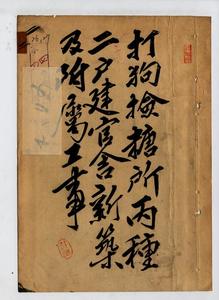 打狗檢糖所丙種
二戶建官舍新築
及附屬工事